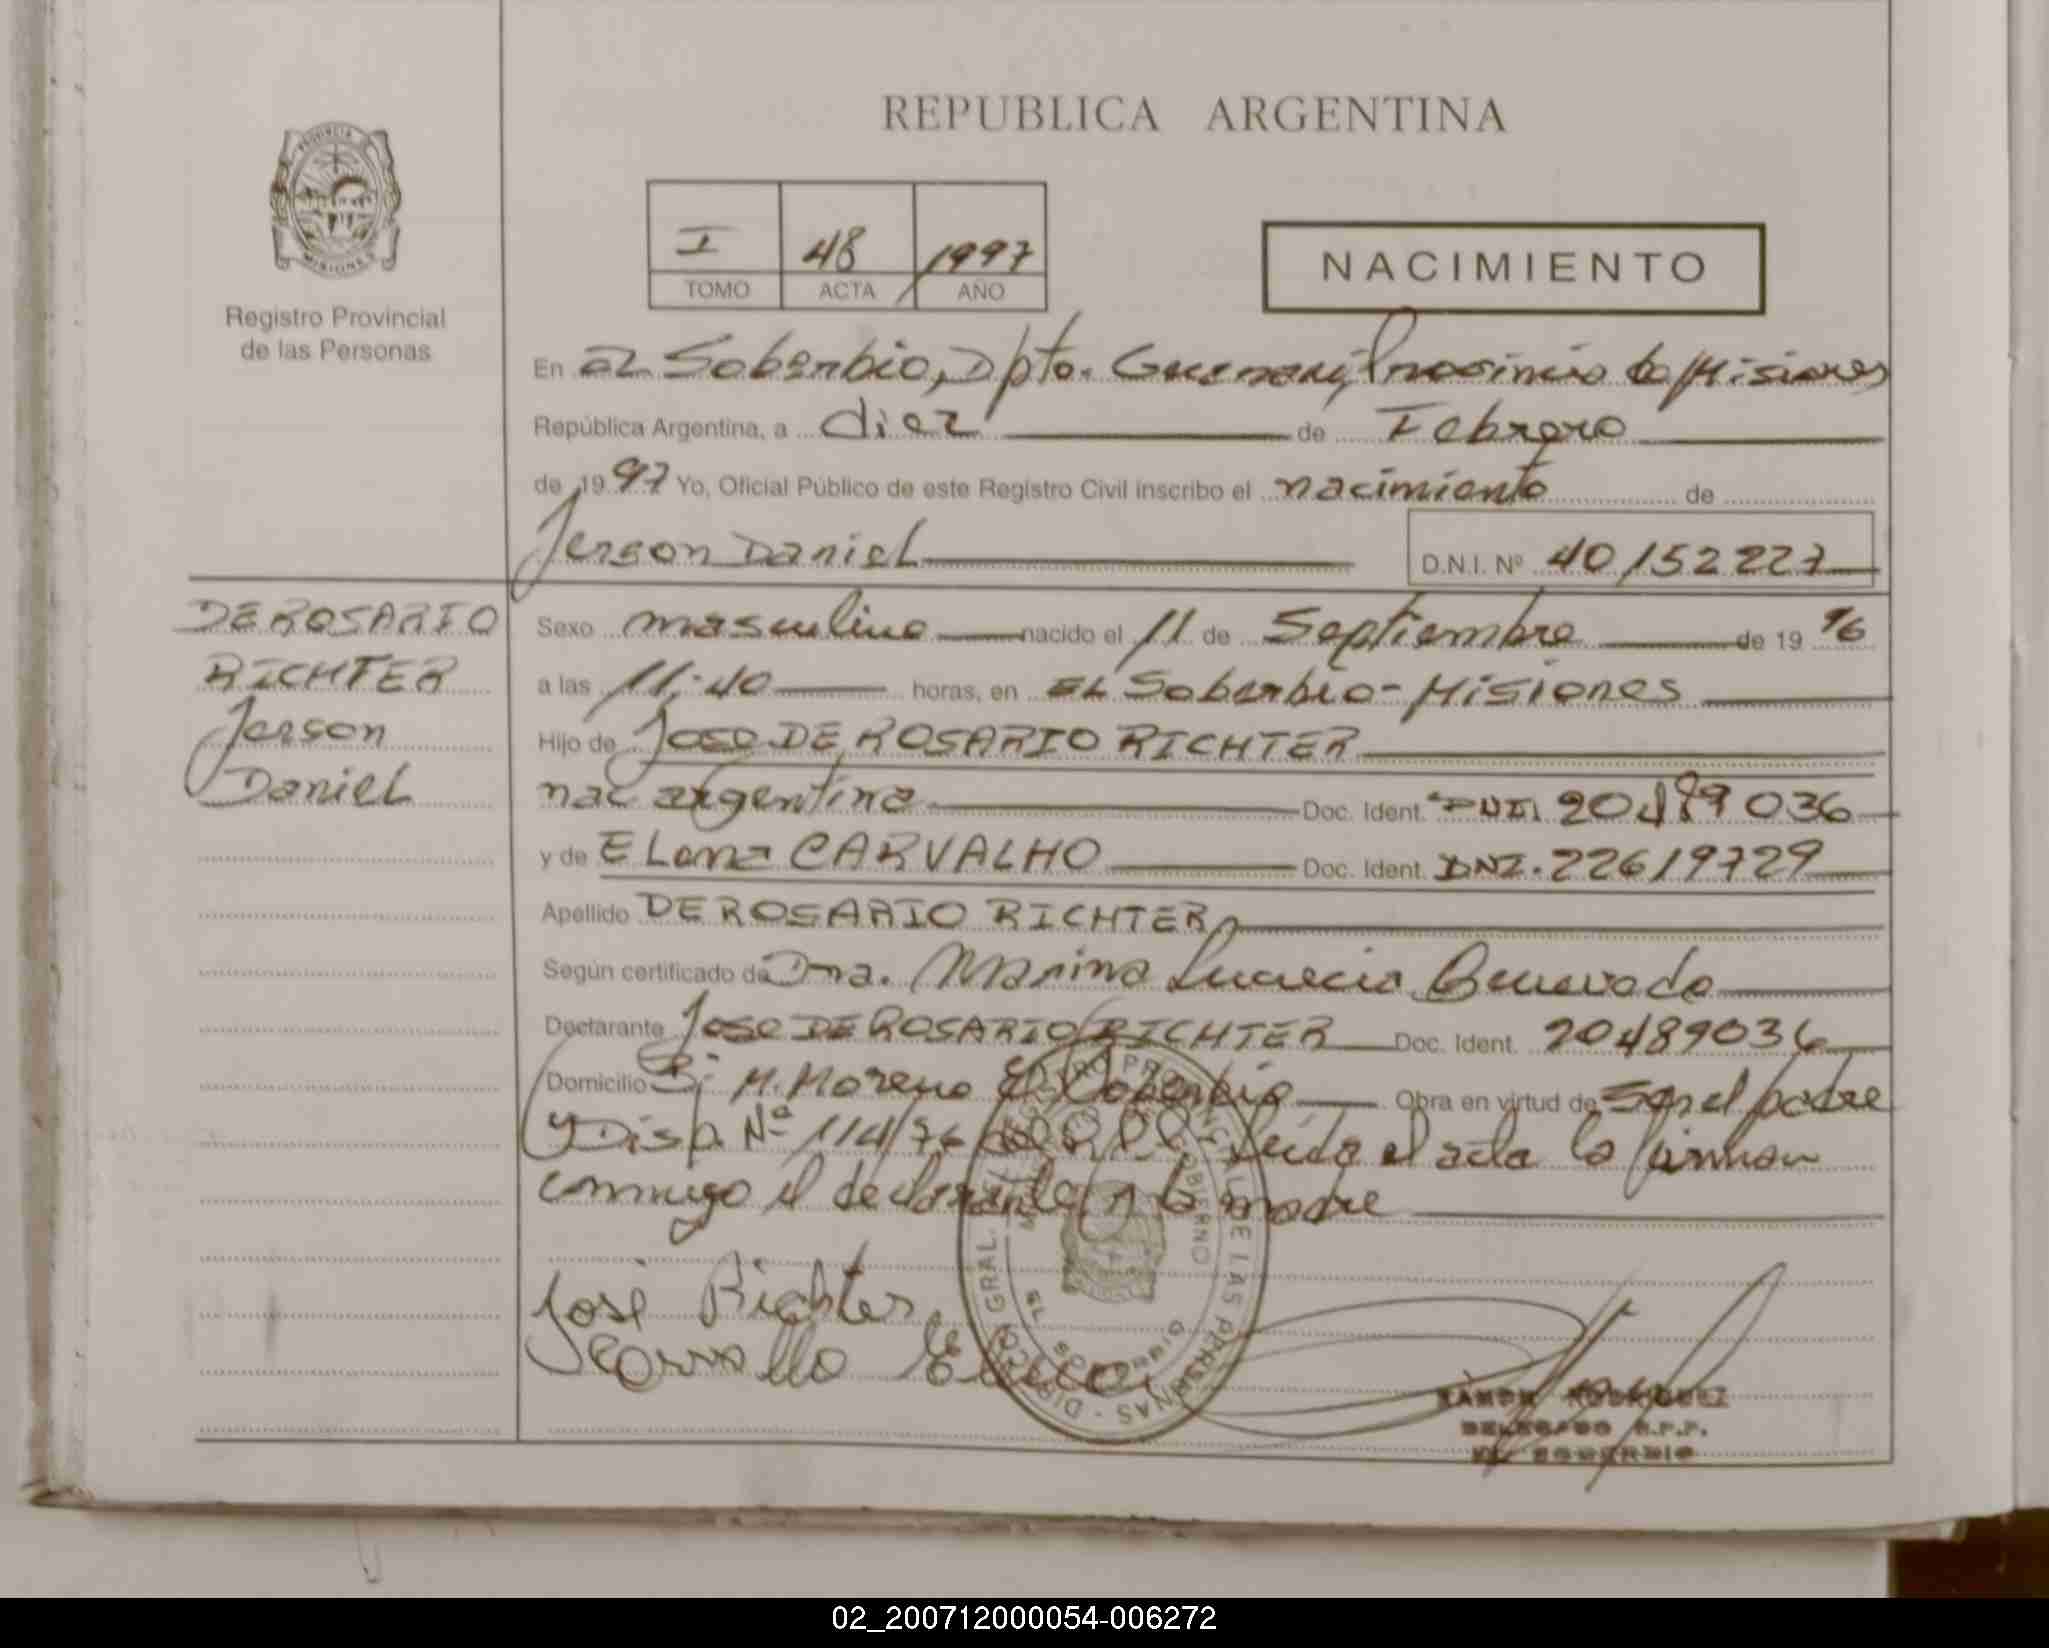 REPUBLICA ARGENTINA
PROVINCIA
MISIONES
Registro Provincial
de las Personas
I 48 1997
TOMO ACTA AÑO
NACIMIENTO
En EL Soberbio, Dpto. Guarani, Provincia de Misiones
República Argentina, a diez de Febrero
de 1997 Yo, Oficial Público de este Registro Civil inscribo el nacimiento de
Jerson Daniel D.N.I. Nº 40152227
DE ROSARIO
RICHTER
Jerson
Daniel
Sexo masculino nacido el 11 de Septiembre de 1996
a las 11:40 horas, en EL Soberbio - Misiones
Hijo de Jose DE ROSARIO RICHTER
nac argentina Doc. Ident. DNI 20489036
y de ELena CARVALHO Doc. Ident. DNI. 22619729
Apellido DE ROSARIO RICHTER
Según certificado de Dra. Marina Lucrecia
Declarante Jose DE ROSARIO RICHTER Doc. Ident. 20489036
Domicilio B: M. Moreno El Soberbio Obra en virtud de ser el padre
y Disp. Nº 114/96 del R.P.P. Leida el acta la firman
conmigo el declarante y la madre
José Richter
Carvallo Elena
GRAL. DE LAS PERSONAS
GOBIERNO
EL SOBERBIO
RAMON RODRIGUEZ
DELEGADO R.P.P.
EL SOBERBIO
02_200712000054-006272